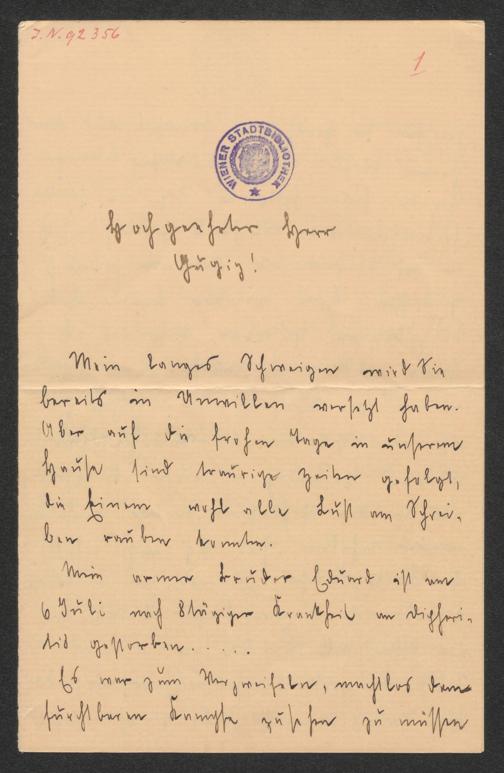 J.N. 92356
1
WIENER STADTBIBLIOTHEK
Hochgeehrter Herr
Gugig!
Mein langes Schweigen wird Sie
bereits in Unwillen versetzt haben.
Aber auf die frohen Tage in unserem
Hause sind traurige Zeiten gefolgt,
die Einem wohl alle Lust am Schrei-
ben rauben konnten.
Mein armer Bruder Eduard ist am
6 Juli nach 8tägiger Krankheit an Diphteri-
tis gestorben.....
Es war zum Verzweifeln, machtlos dem
furchtbaren Kampfe zusehen zu müssen